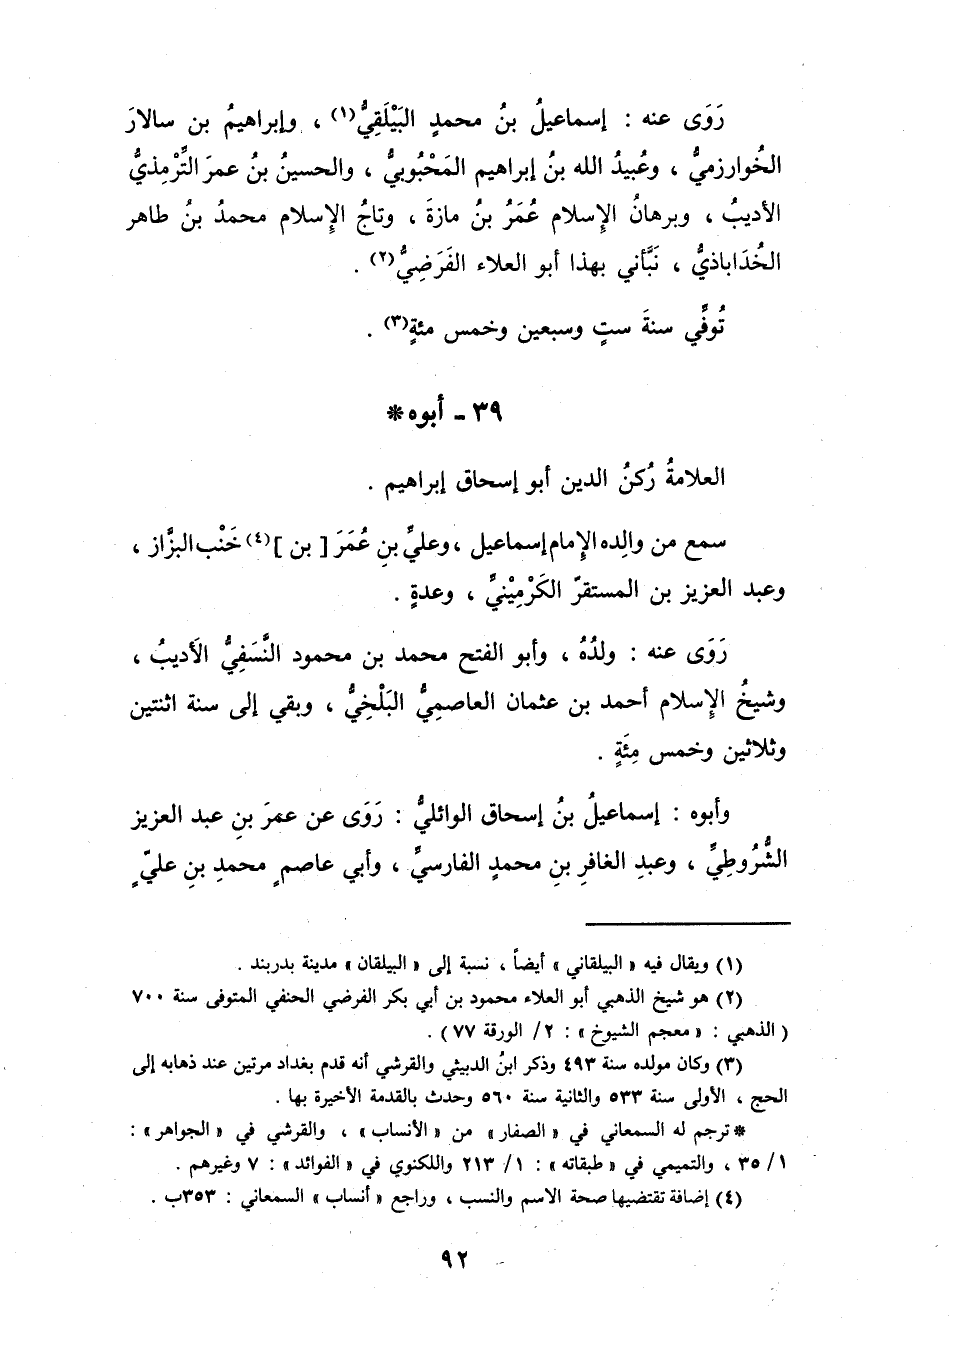 رَوَى عنه : إسماعيلُ بنُ محمدٍ البَيْلَقِيُّ(١) ، وإبراهيمُ بن سالارَ
الخُوارزميُّ ، وعُبيدُ الله بنُ إبراهيم المَحْبُوبيُّ ، والحسينُ بنُ عمرَ التِّرْمذيُّ
الأديبُ ، وبرهانُ الإسلام عُمَرُ بنُ مازةَ ، وتاجُ الإسلام محمدُ بنُ طاهر
الخُدَاباذيُّ ، نَبَّأني بهذا أبو العلاء الفَرَضِيُّ(٢) .
تُوفِّي سنةَ ستٍ وسبعين وخمس مئةٍ(٣) .
٣٩ - أبوه*
العلامةُ رُكنُ الدين أبو إسحاق إبراهيم .
سمع من والِده الإمام إسماعيل ، وعليِّ بنِ عُمَرَ [ بن ](٤) خَنْب البزَّاز ،
وعبد العزيز بن المستقرّ الكَرْمِيْنيِّ ، وعدةٍ .
رَوَى عنه : ولدُهُ ، وأبو الفتح محمد بن محمود النَّسَفِيُّ الأديبُ ،
وشيخُ الإسلام أحمد بن عثمان العاصمِيُّ البَلْخِيُّ ، وبقي إلى سنة اثنتين
وثلاثين وخمس مِئَةٍ .
وأبوه : إسماعيلُ بنُ إسحاق الوائليُّ : رَوَى عن عمرَ بنِ عبد العزيز
الشُّرُوطِيِّ ، وعبدِ الغافرِ بنِ محمدٍ الفارسيِّ ، وأبي عاصمٍ محمدِ بنِ عليّ
(١) ويقال فيه « البيلقاني » أيضاً ، نسبة إلى « البيلقان » مدينة بدربند .
(٢) هو شيخ الذهبي أبو العلاء محمود بن أبي بكر الفرضي الحنفي المتوفى سنة ٧٠٠
( الذهبي : « معجم الشيوخ » : ٢/ الورقة ٧٧ ) .
(٣) وكان مولده سنة ٤٩٣ وذكر ابنُ الدبيثي والقرشي أنه قدم بغداد مرتين عند ذهابه إلى
الحج ، الأولى سنة ٥٣٣ والثانية سنة ٥٦٠ وحدث بالقدمة الأخيرة بها .
* ترجم له السمعاني في « الصفار » من « الأنساب » ، والقرشي في « الجواهر » :
١/ ٣٥ ، والتميمي في « طبقاته » : ١/ ٢١٣ واللكنوي في « الفوائد » : ٧ وغيرهم .
(٤) إضافة تقتضيها صحة الاسم والنسب ، وراجع « أنساب » السمعاني : ٣٥٣ب .
٩٢